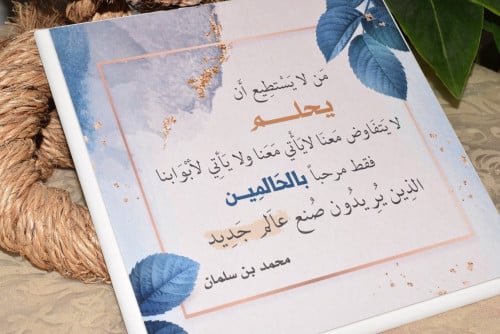 مَن لا يَسْتَطِيع أَن
يحلم
لا يَتَفَاوض مَعنَا لايَأْتي مَعَنا ولا يَأتِي لأَبْوَابنا
فقط مرحباً بالحَالمِين
الذِين يُرِيدُون صُنع عَالَم جَدِيد
محمد بن سلمان